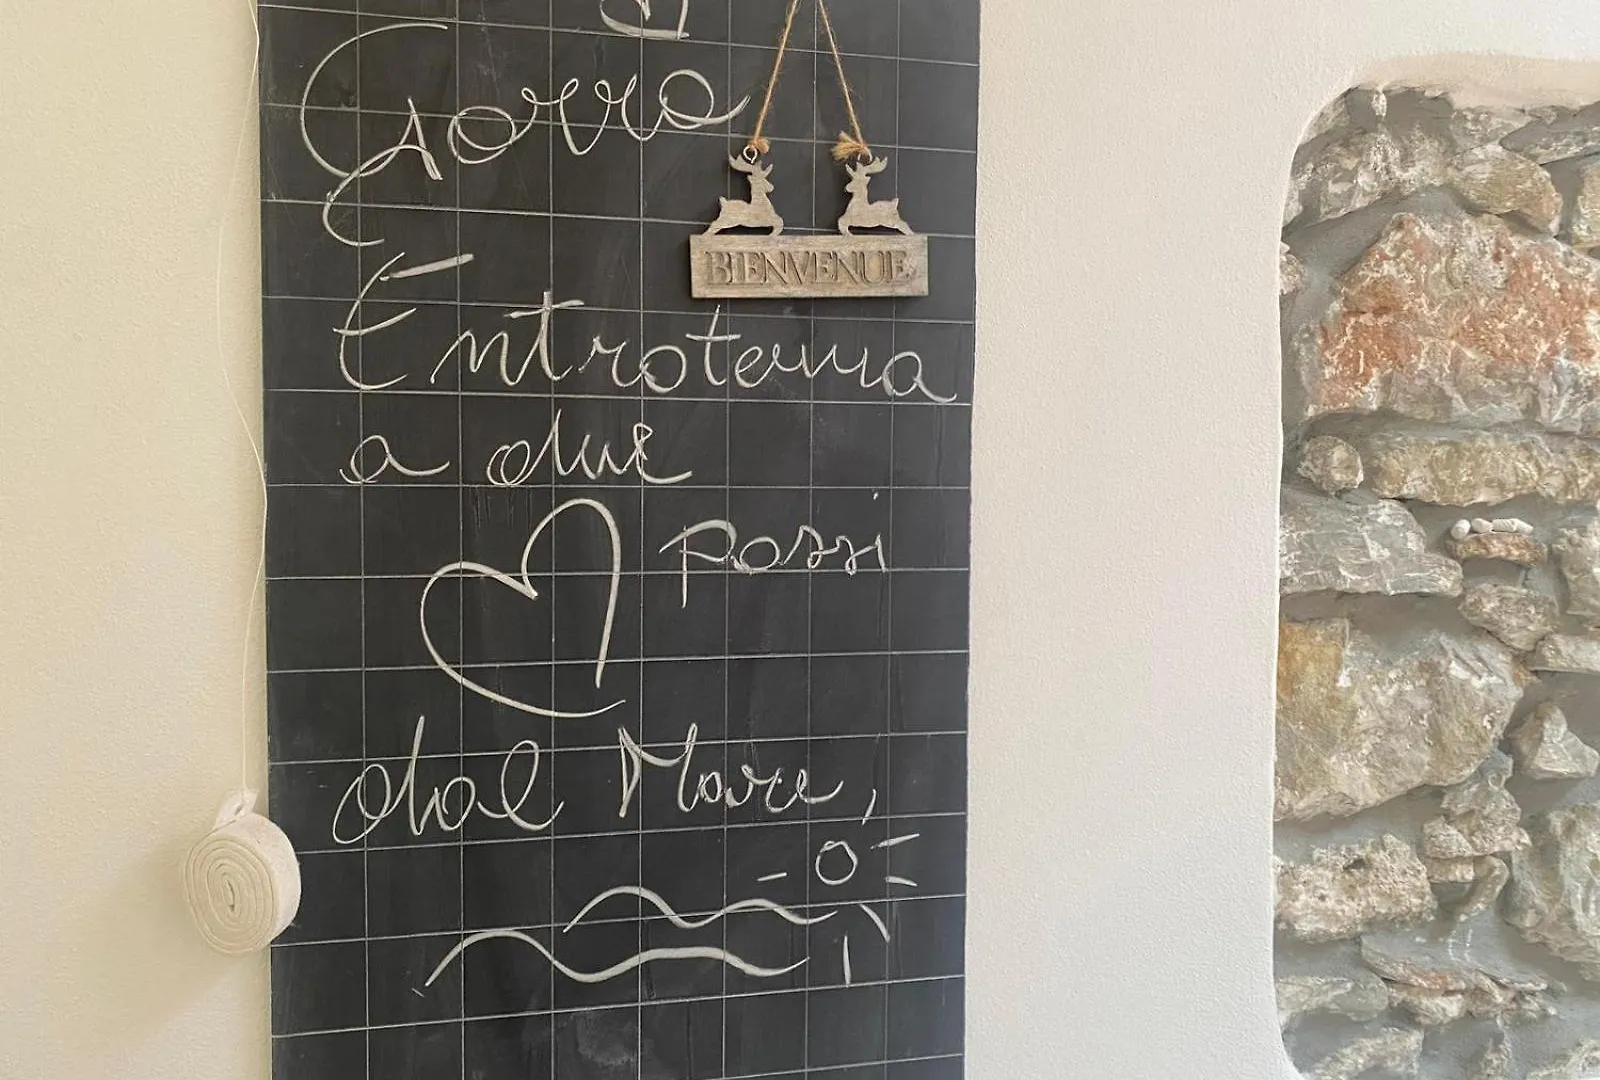 Gorra
BIENVENUE
È
Entroterra
a due
passi
dal Mare,